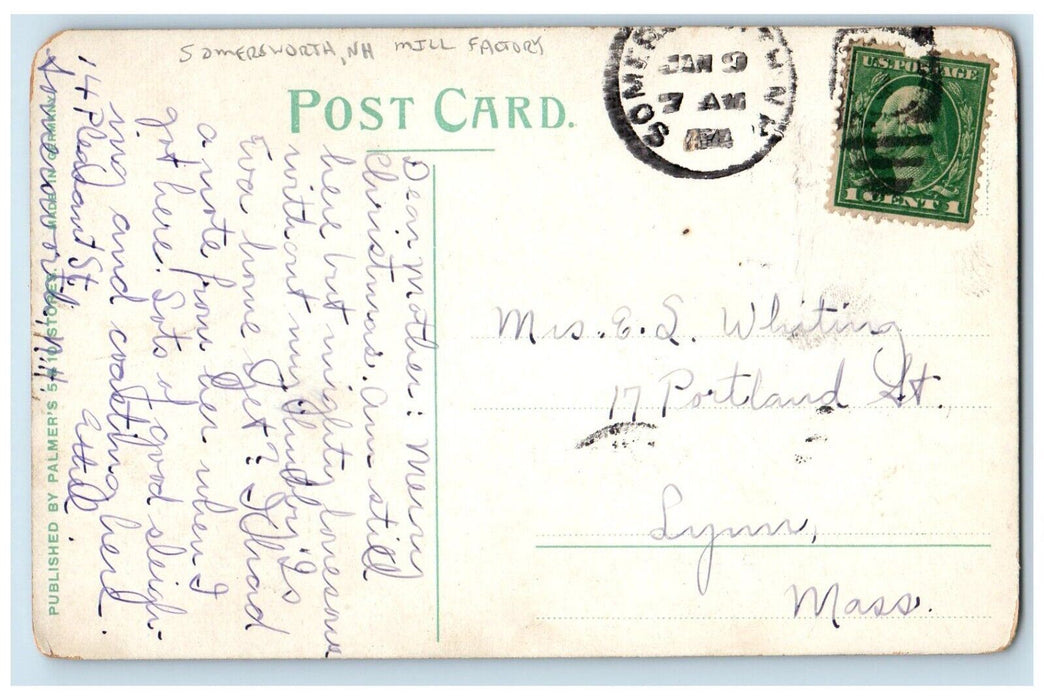 SOMERSWORTH, NH MILL FACTORY
POST CARD.
JAN 9
7 AM
U.S. POSTAGE
1 CENT 1
Dear Mother: Merry
Christmas. Am still
here but mighty lonesome
without my Is
Eva home yet? I had
a note from her when I
got here. Lots of good sleigh-
ing and coasting here.
Ethel.
14 Pleasant St.
Somersworth, N.H.
Mrs. E. S. Whiting
17 Portland St.
Lynn,
Mass.
PUBLISHED BY PALMER'S 5 & 10 STORES. MADE IN GERMANY